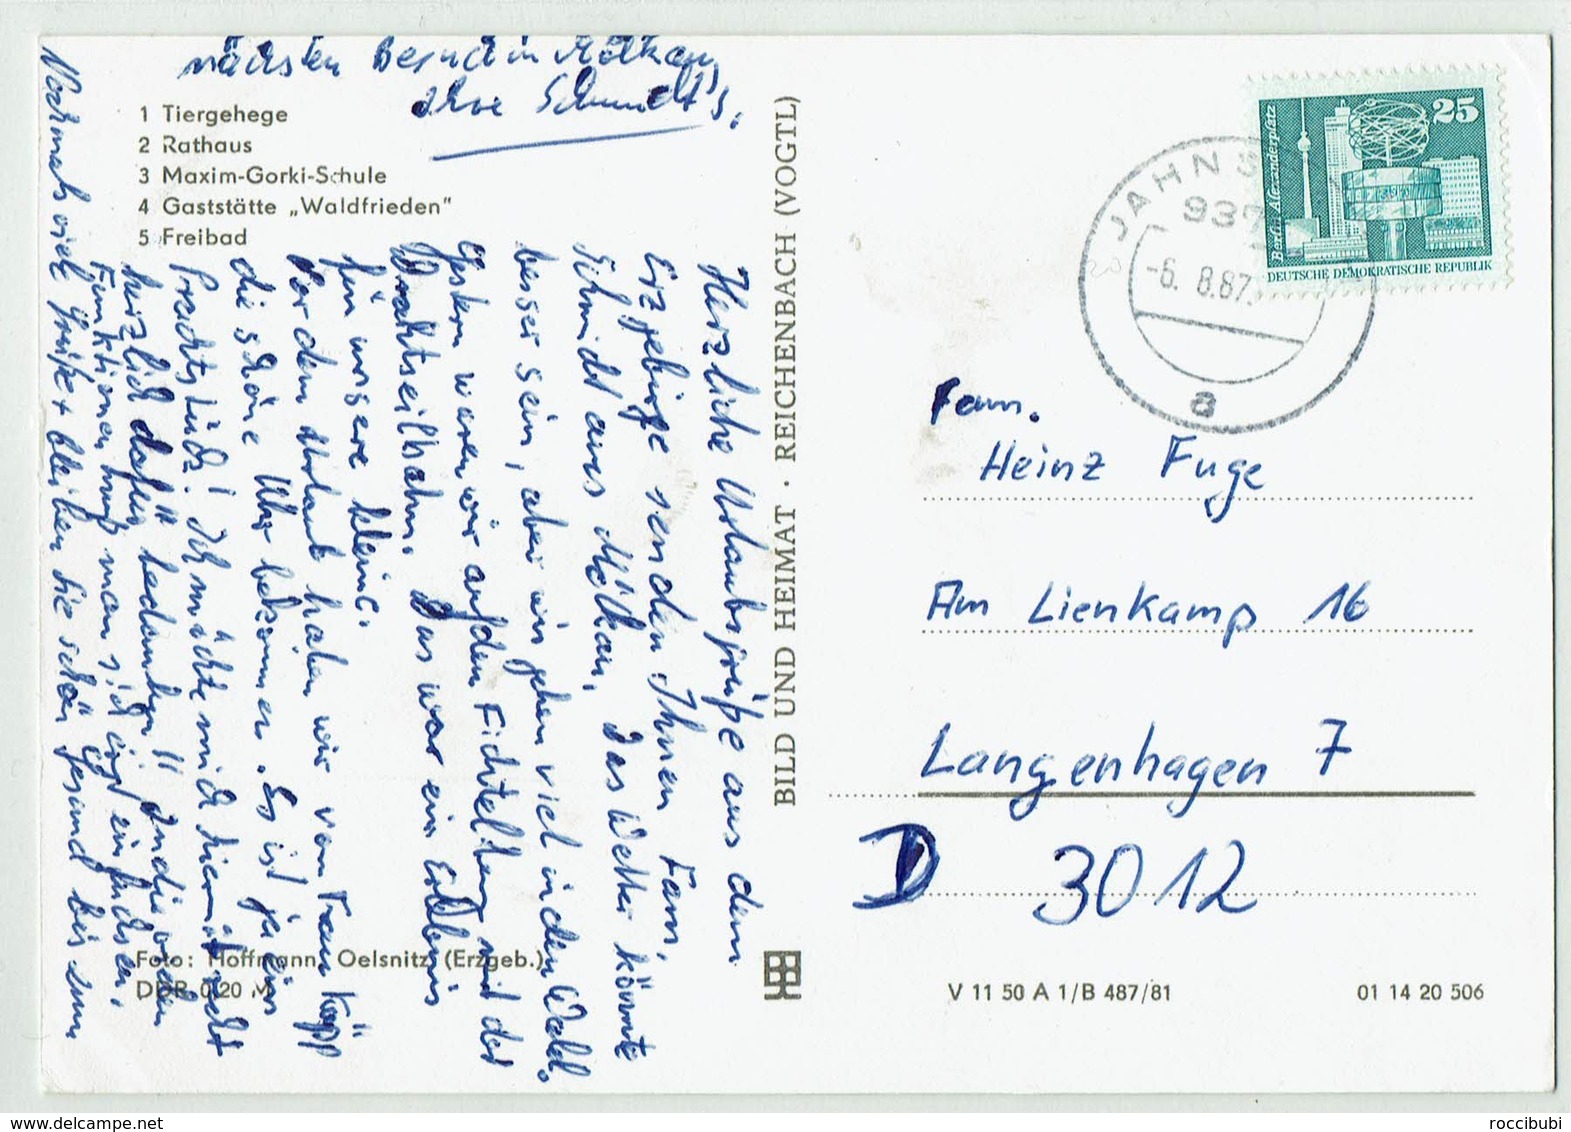 nächsten Besuch in
Ihre Schmidt's.
1 Tiergehege
2 Rathaus
3 Maxim-Gorki-Schule
4 Gaststätte „Waldfrieden"
5 Freibad
Herzliche Urlaubsgrüße aus dem
Erzgebirge senden Ihnen Fam.
Schmidt aus Das Wetter könnte
besser sein, aber wir gehen viel in den Wald.
Gestern waren wir auf dem Fichtelberg mit der
Drahtseilbahn. Das war ein Erlebnis
für unsere kleine.
Vor dem Urlaub haben wir von Frau Köpp
die schöne Uhr bekommen. Es ist ja ein
Prachtstück! Ich möchte mich hiermit recht
herzlich dafür bedanken!! In die vielen
Funktionen muß man sich erst einfuchsen.
Nochmals viele Grüße + bleiben Sie schön gesund bis zum
Foto: Hoffmann, Oelsnitz (Erzgeb.)
DDR 0,20 M
BILD UND HEIMAT · REICHENBACH (VOGTL)
JAHNS
937
-6. 8.87.
a
25
Berlin, Alexanderplatz
DEUTSCHE DEMOKRATISCHE REPUBLIK
Fam.
Heinz Fuge
Am Lienkamp 16
Langenhagen 7
D 3012
V 11 50 A 1/B 487/81
01 14 20 506
roccibubi